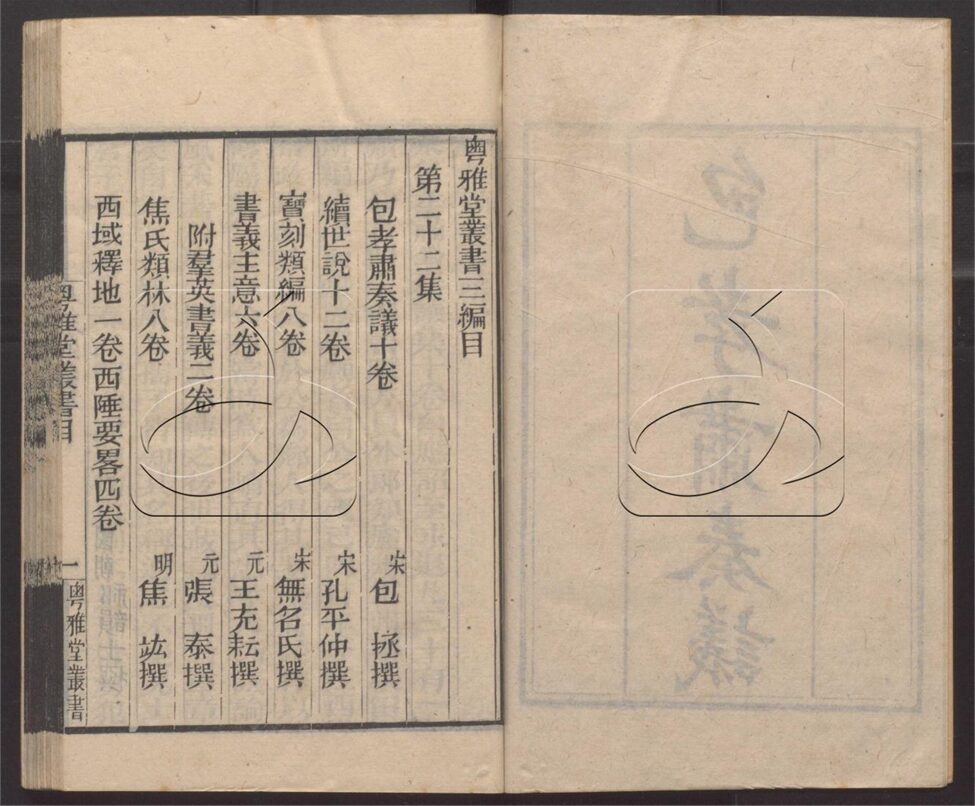 包孝肅奏議
粤雅堂叢書三編目
第二十二集
包孝肅奏議十卷 宋 包 拯撰
續世說十二卷 宋 孔平仲撰
寶刻類編八卷 宋 無名氏撰
書義主意六卷 元 王充耘撰
附羣英書義二卷 元 張 泰撰
焦氏類林八卷 明 焦 竑撰
西域釋地一卷西陲要畧四卷
粤雅堂叢書目 一 粤雅堂叢書